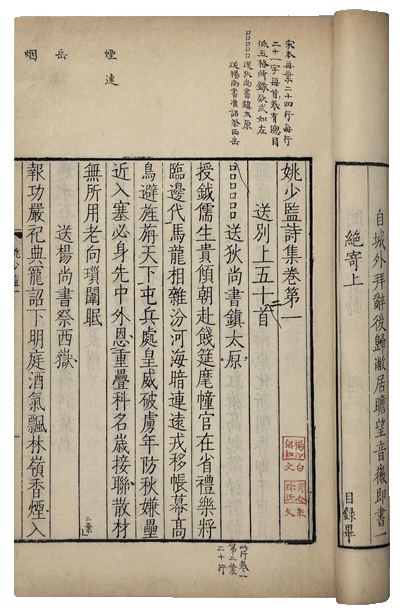 自城外拜辭後歸敝居瞻望音徽即書一
絕寄上
目録畢
宋本每葉二十四行每行
二十一字每首卷有總目
低五格所録款式如左
□□□□□送狄尚書鎮太原
□□□□□送楊尚書准詔祭西岳
姚少監詩集卷第一
送別上五十首
送狄尚書鎮太原
授鉞儒生貴傾朝赴餞筵麾幢官在省禮樂將
臨邊代馬龍相雜汾河海暗連遠戎移帳幕高
鳥避旌旃天下屯兵處皇威破虜年防秋嫌壘
近入塞必身先中外恩重疊科名嵗接聯散材
無所用老向瑣闈眠
送楊尚書祭西嶽
報功嚴祀典寵詔下明庭酒氣飄林嶺香煙入
煙連
岳
烟
二葉
此行卷一
第二葉
二十行
姚少監一